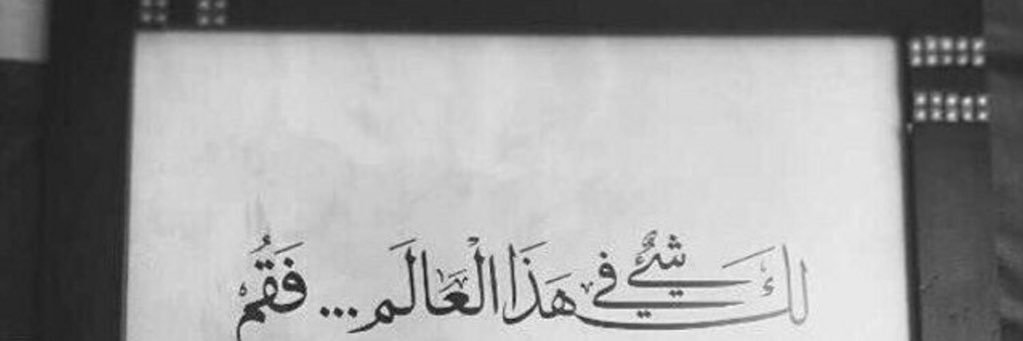 لكَ شيءٌ في هَذَا الْعَالَم... فَقُمْ